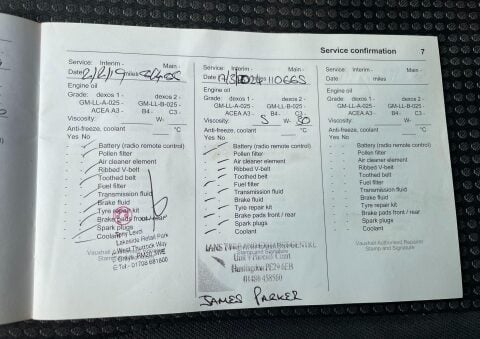 Service confirmation 7
Service: Interim - Main -
Date miles
Engine oil
Grade: dexos 1 - dexos 2 -
GM-LL-A-025 - GM-LL-B-025 -
ACEA A3 - B4 - C3 -
Viscosity: W-
Anti-freeze, coolant °C
Yes No
Battery (radio remote control)
Pollen filter
Air cleaner element
Ribbed V-belt
Toothed belt
Fuel filter
Transmission fluid
Brake fluid
Tyre repair kit
Brake pads front / rear
Spark plugs
Coolant
Lakeside Retail Park
West Thurrock Way
Service: Interim - Main -
Date miles 110665
Engine oil
Grade: dexos 1 - dexos 2 -
GM-LL-A-025 - GM-LL-B-025 -
ACEA A3 - B4 - C3
Viscosity: 5 W- 30
Anti-freeze, coolant °C
Yes No
Battery (radio remote control)
Pollen filter
Air cleaner element
Ribbed V-belt
Toothed belt
Fuel filter
Transmission fluid
Brake fluid
Tyre repair kit
Brake pads front / rear
Spark plugs
Coolant
Huntingdon PE29 6EB
JAMES PARKER
Service: Interim - Main -
Date miles
Engine oil
Grade: dexos 1 - dexos 2 -
GM-LL-A-025 - GM-LL-B-025 -
ACEA A3 - B4 - C3 -
Viscosity: W-
Anti-freeze, coolant °C
Yes No
Battery (radio remote control)
Pollen filter
Air cleaner element
Ribbed V-belt
Toothed belt
Fuel filter
Transmission fluid
Brake fluid
Tyre repair kit
Brake pads front / rear
Spark plugs
Coolant
Vauxhall Authorised Repairer
Stamp and Signature